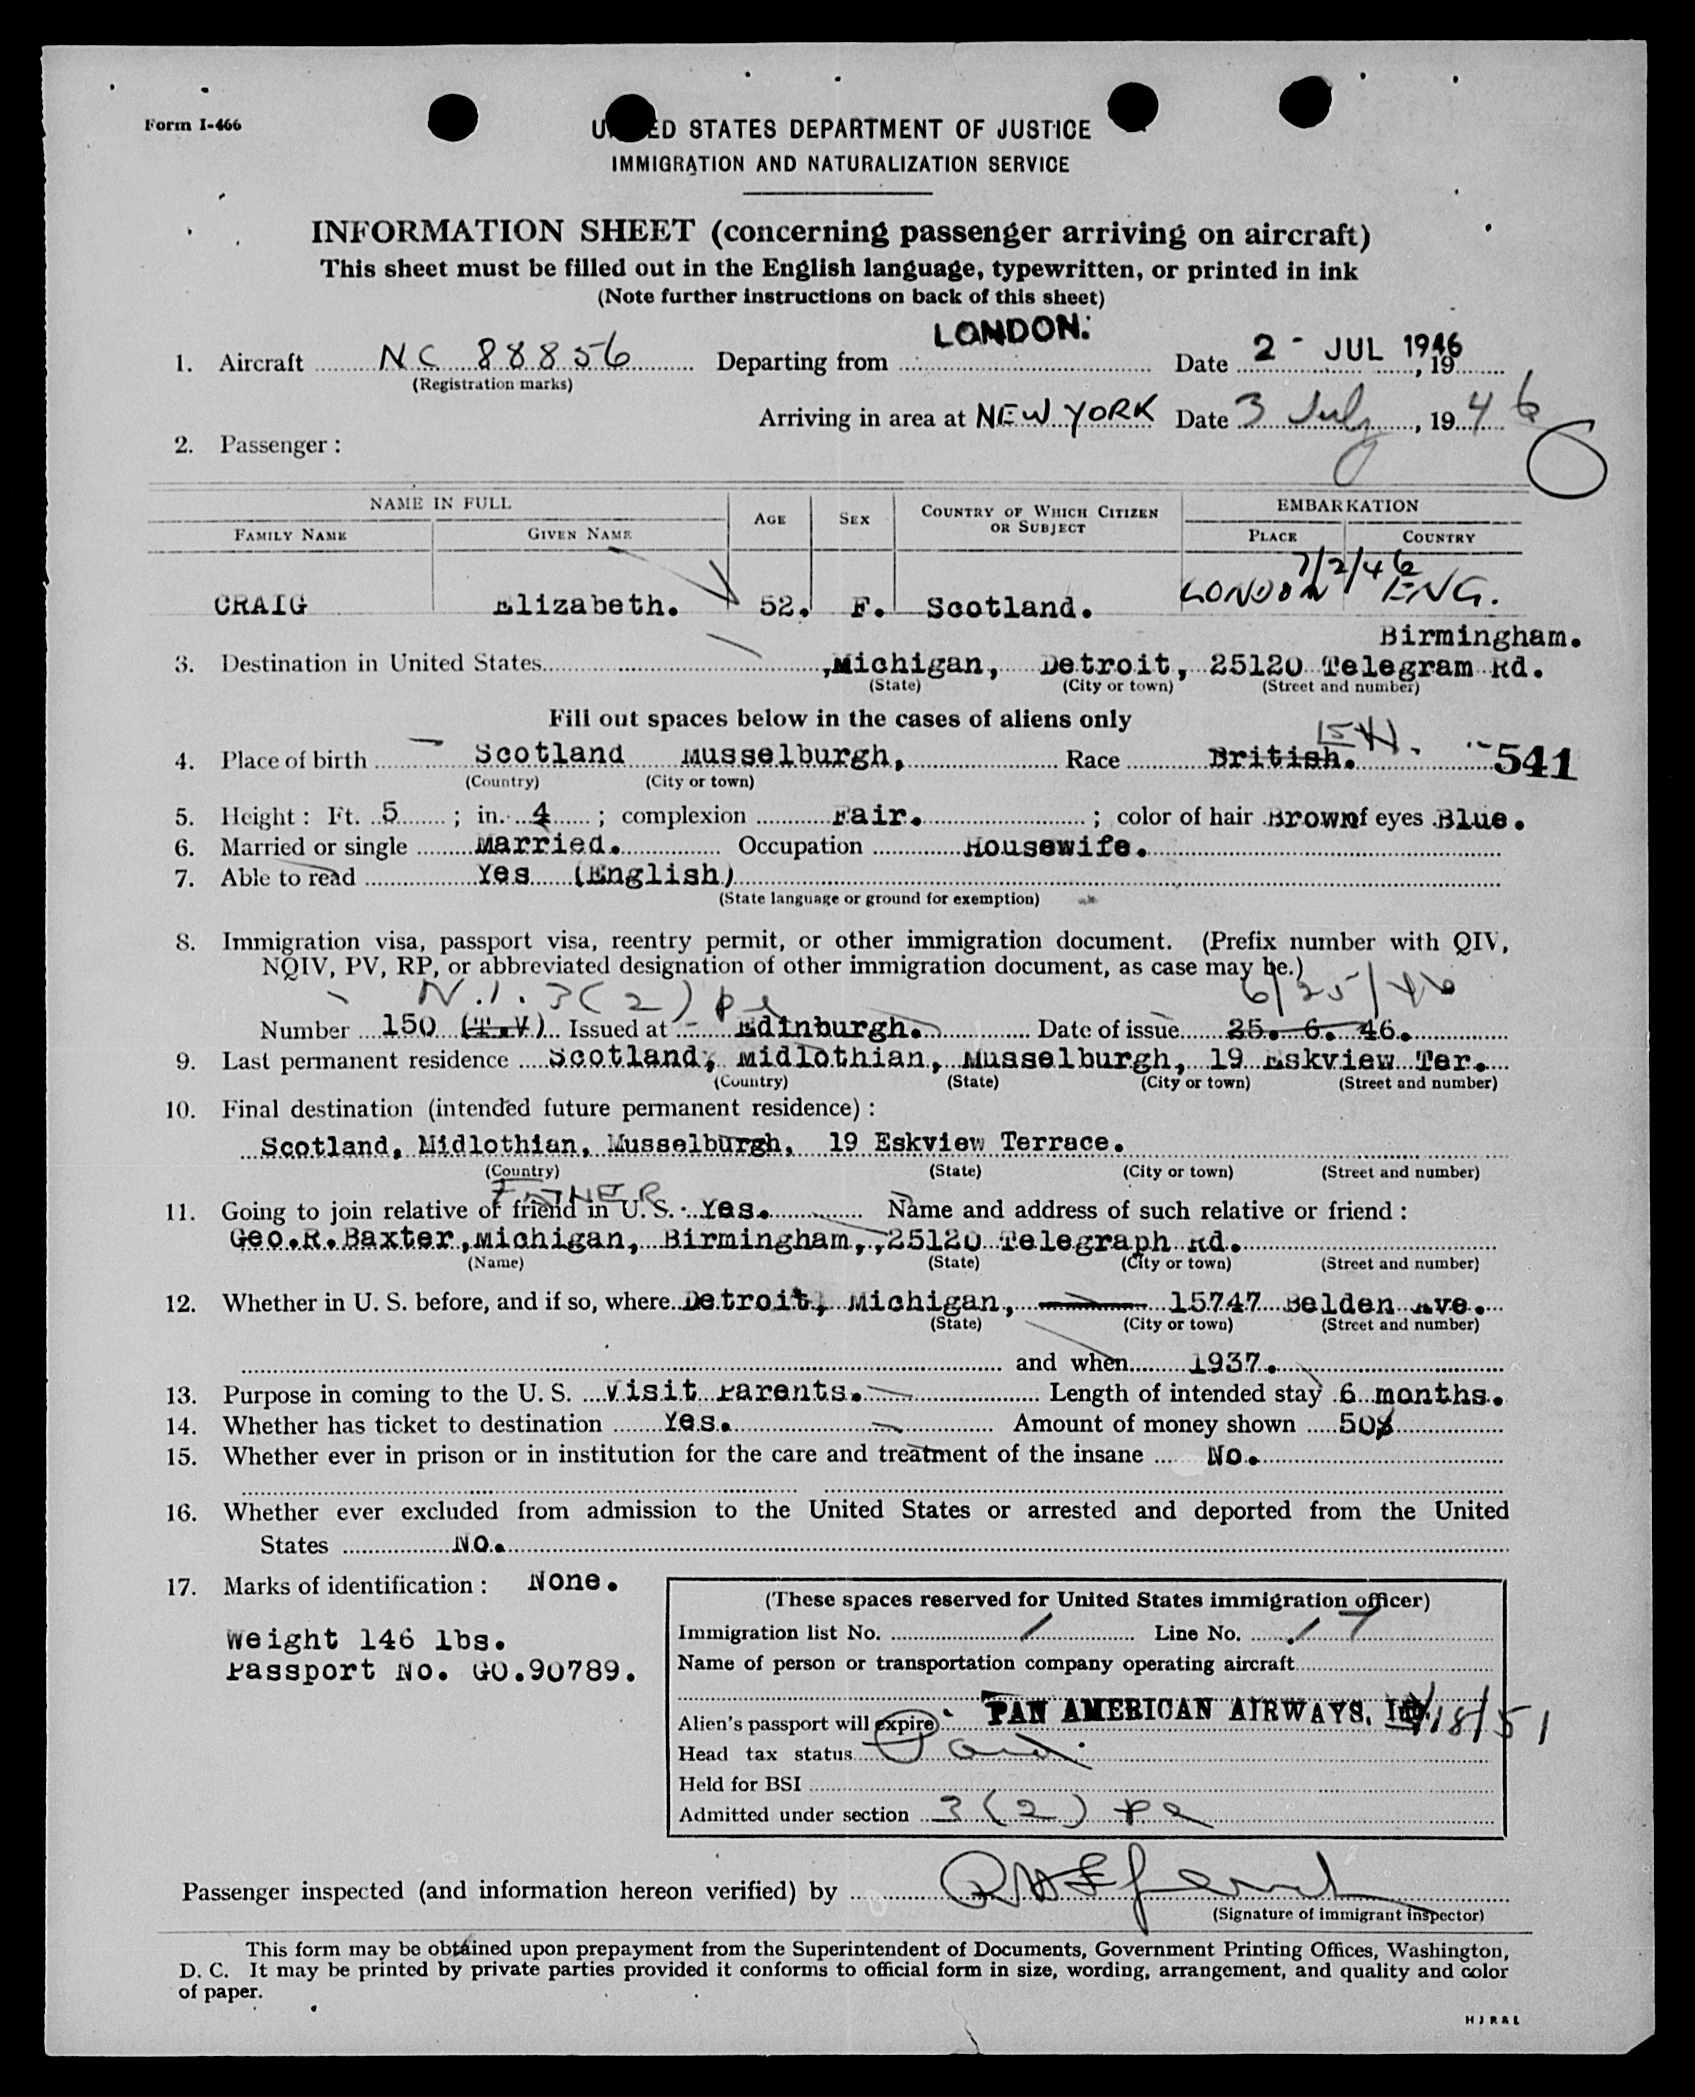 Form I-466
UNITED STATES DEPARTMENT OF JUSTICE
IMMIGRATION AND NATURALIZATION SERVICE
INFORMATION SHEET (concerning passenger arriving on aircraft)
This sheet must be filled out in the English language, typewritten, or printed in ink
(Note further instructions on back of this sheet)
1. Aircraft NC 88856 Departing from LONDON. Date 2 - JUL 1946, 19
(Registration marks)
Arriving in area at NEW YORK Date 3 July, 1946
2. Passenger:
NAME IN FULL AGE SEX COUNTRY OF WHICH CITIZEN OR SUBJECT EMBARKATION
FAMILY NAME GIVEN NAME PLACE COUNTRY
7/2/46
CRAIG Elizabeth. 52. F. Scotland. LONDON ENG.
Birmingham.
3. Destination in United States ,Michigan, Detroit, 25120 Telegram Rd.
(State) (City or town) (Street and number)
Fill out spaces below in the cases of aliens only
4. Place of birth Scotland Musselburgh, Race British. 541
(Country) (City or town)
5. Height: Ft. 5; in. 4; complexion Fair.; color of hair Brown of eyes Blue.
6. Married or single Married. Occupation Housewife.
7. Able to read Yes (English)
(State language or ground for exemption)
8. Immigration visa, passport visa, reentry permit, or other immigration document. (Prefix number with QIV,
NQIV, PV, RP, or abbreviated designation of other immigration document, as case may be.)
N.I. 3(2) pe 6/25/46
Number 150 (T.V) Issued at Edinburgh. Date of issue 25. 6. 46.
9. Last permanent residence Scotland, Midlothian, Musselburgh, 19 Eskview Ter.
(Country) (State) (City or town) (Street and number)
10. Final destination (intended future permanent residence):
Scotland, Midlothian, Musselburgh, 19 Eskview Terrace.
(Country) (State) (City or town) (Street and number)
FATHER
11. Going to join relative or friend in U. S. Yes. Name and address of such relative or friend:
Geo.R.Baxter,Michigan, Birmingham,,25120 Telegraph Rd.
(Name) (State) (City or town) (Street and number)
12. Whether in U. S. before, and if so, where Detroit, Michigan, 15747 Belden Ave.
(State) (City or town) (Street and number)
and when 1937.
13. Purpose in coming to the U. S. Visit Parents. Length of intended stay 6 months.
14. Whether has ticket to destination Yes. Amount of money shown 50$
15. Whether ever in prison or in institution for the care and treatment of the insane No.
16. Whether ever excluded from admission to the United States or arrested and deported from the United
States No.
17. Marks of identification: None.
Weight 146 lbs.
Passport No. GO.90789.
(These spaces reserved for United States immigration officer)
Immigration list No. 1 Line No. 17
Name of person or transportation company operating aircraft
PAN AMERICAN AIRWAYS, Inc.
Alien's passport will expire /18/51
Head tax status
Held for BSI
Admitted under section 3(2) pe
Passenger inspected (and information hereon verified) by
(Signature of immigrant inspector)
This form may be obtained upon prepayment from the Superintendent of Documents, Government Printing Offices, Washington,
D. C. It may be printed by private parties provided it conforms to official form in size, wording, arrangement, and quality and color
of paper.
HJR&L